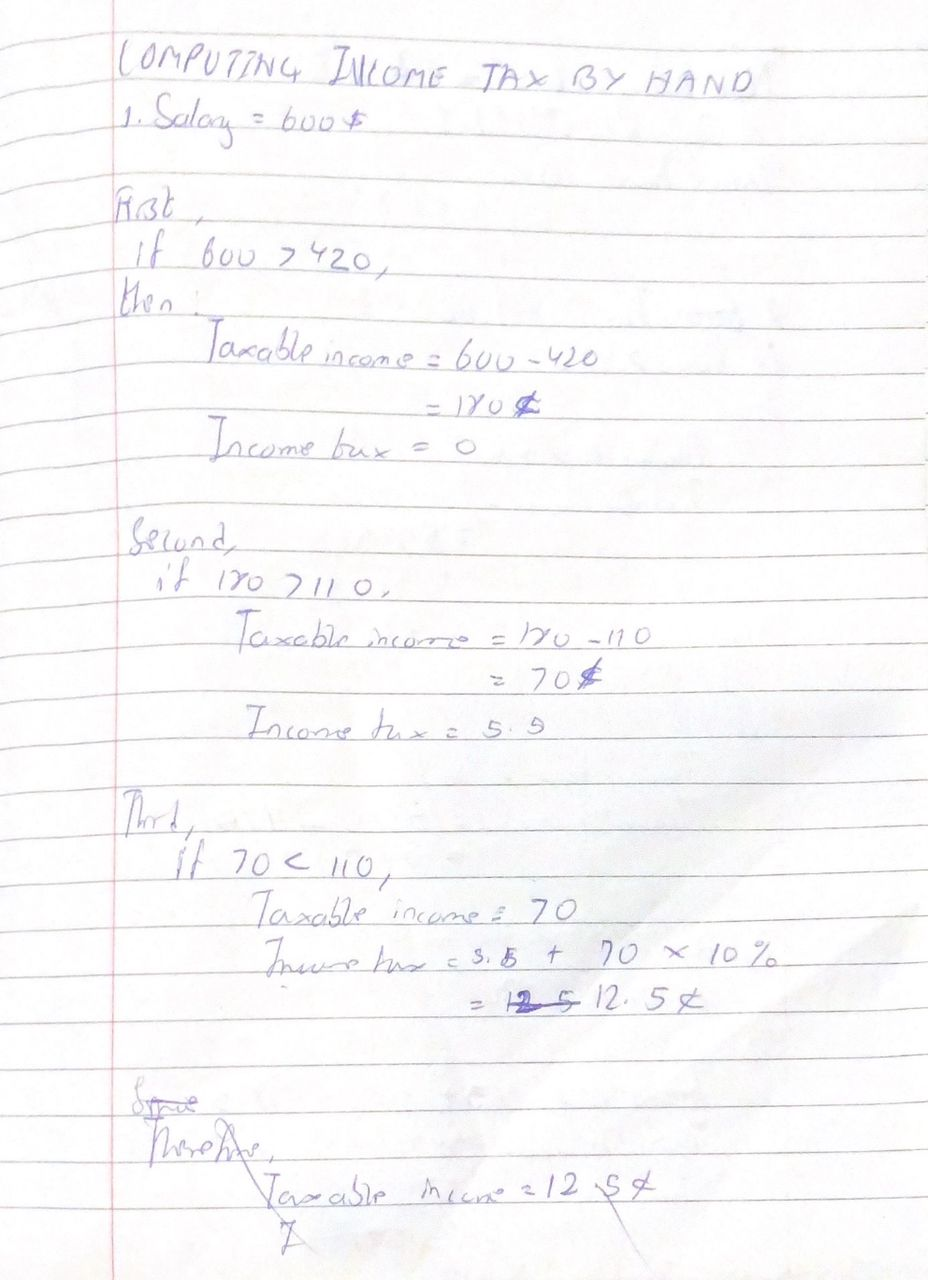 COMPUTING INCOME TAX BY HAND
1. Salary = 600 $
First,
if 600 > 420,
then:
Taxable income = 600 - 420
= 180 ¢
Income tax = 0
Second,
if 180 > 110,
Taxable income = 180 - 110
= 70 ¢
Income tax = 5.5
Third,
if 70 < 110,
Taxable income = 70
Income tax = 5.5 + 70 x 10%
= 12.5 12.5 ¢
Since
Therefore,
Taxable income = 12.5 ¢
I